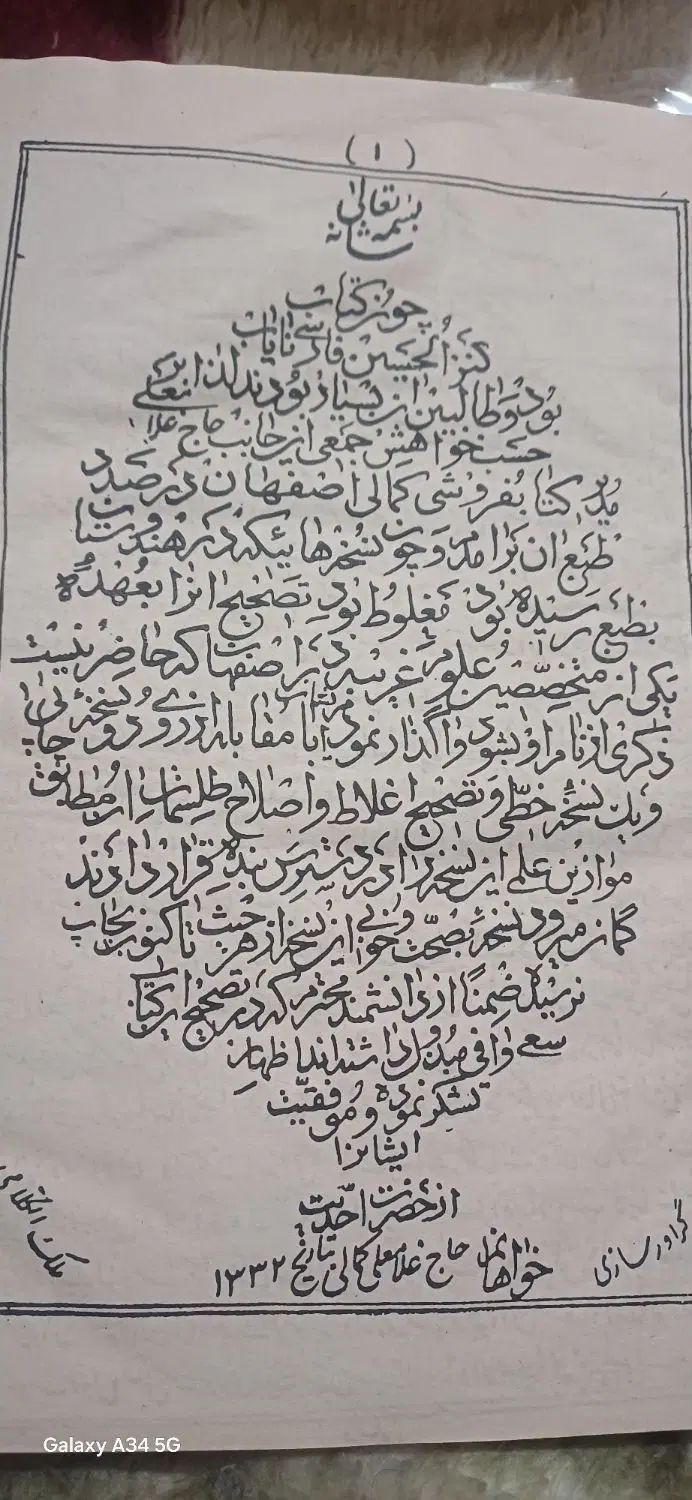 (۱)
بسمه تعالی شانه
چون کتاب
کنز الحسین فارسی نایاب
بود و طالبین آن بسیار بودند لذا این
حسب خواهش جمعی از جانب حاج غلامعلی
مدیر کتابفروشی کمالی اصفهان در صدد
طبع ان برامدم و چون نسخه هائیکه در هندوستان
بطبع رسیده بود مغلوط بود تصحیح انرا بعهده
یکی از متخصصین علوم غریبه در اصفهان که حاضر نیست
ذکری از نام او بشود واگذار نموده با مقابله از روی دو نسخه چاپی
و یک نسخه خطی و تصحیح اغلاط و اصلاح طلسمات از مطابق
موازین علمی این نسخه را در دسترس بنده قرار دادند
گمان میرود نسخه بصحت و خوبی این نسخه از هر حیث تا کنون بچاپ
نرسیده ضمنا از دانشمند محترم که در تصحیح این کتاب
سعی وافی مبذول داشته اند اظهار
تشکر نموده و موفقیت
ایشانرا
از حضرت احدیت
خواهانم حاج غلامعلی کمالی بتاریخ ۱۳۳۲
گراور سازی